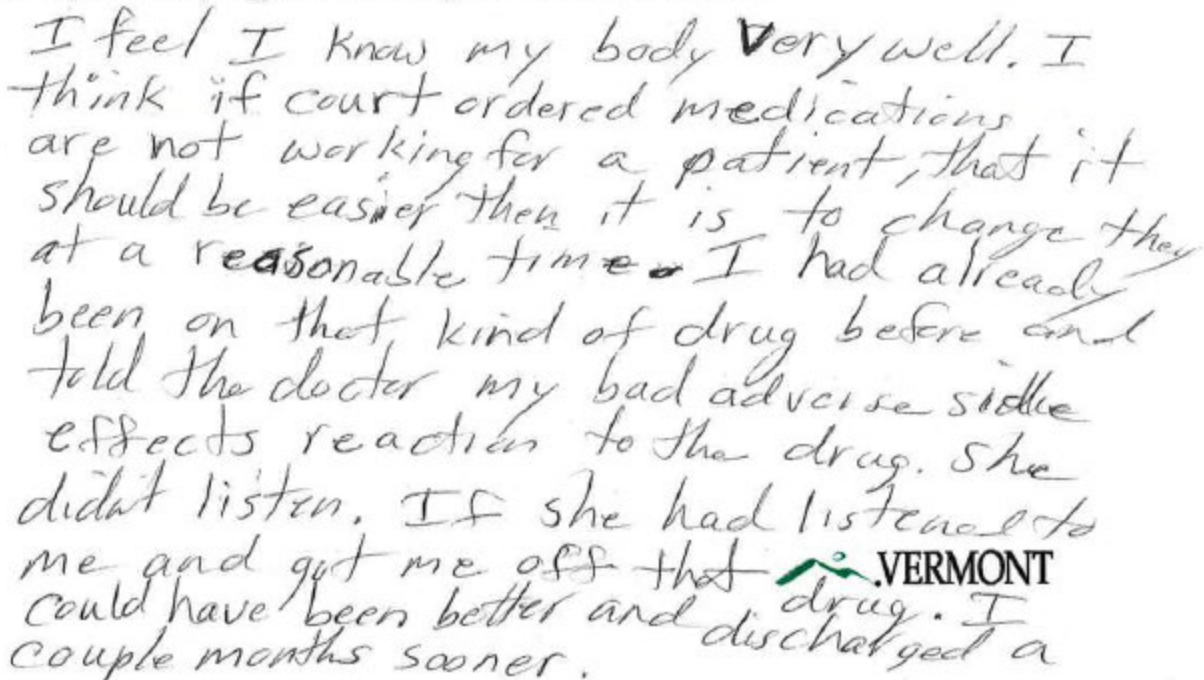 I feel I know my body very well. I
think if court ordered medications
are not working for a patient, that it
should be easier then it is to change they
at a reasonable time. I had already
been on that kind of drug before and
told the doctor my bad adverse side
effects reaction to the drug. She
didnt listen. If she had listened to
me and got me off that
VERMONT
drug. I
could have been better and discharged a
couple months sooner.